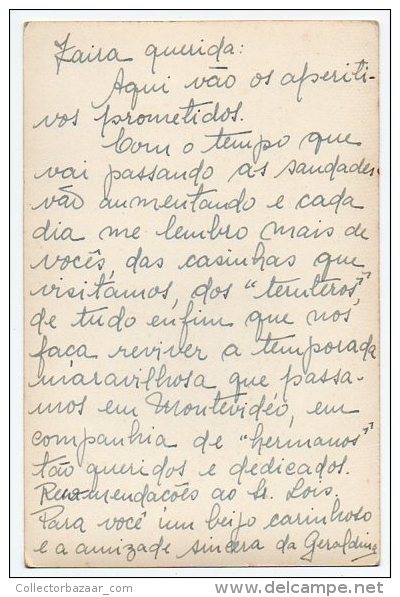 Zaira querida:
Aqui vão os aperiti-
vos prometidos.
Com o tempo que
vai passando as saudades
vão aumentando e cada
dia me lembro mais de
vocês, das casinhas que
visitamos, dos "ternteros",
de tudo enfim que nos
faça reviver a temporada
maravilhosa que passa-
mos em Montevidéo, em
companhia de "hermanos"
tão queridos e dedicados.
Recomendações ao Sr. Lois.
Para você um beijo carinhoso
e a amizade sincera da Geraldina
Collectorbazaar.com / delcampe.net